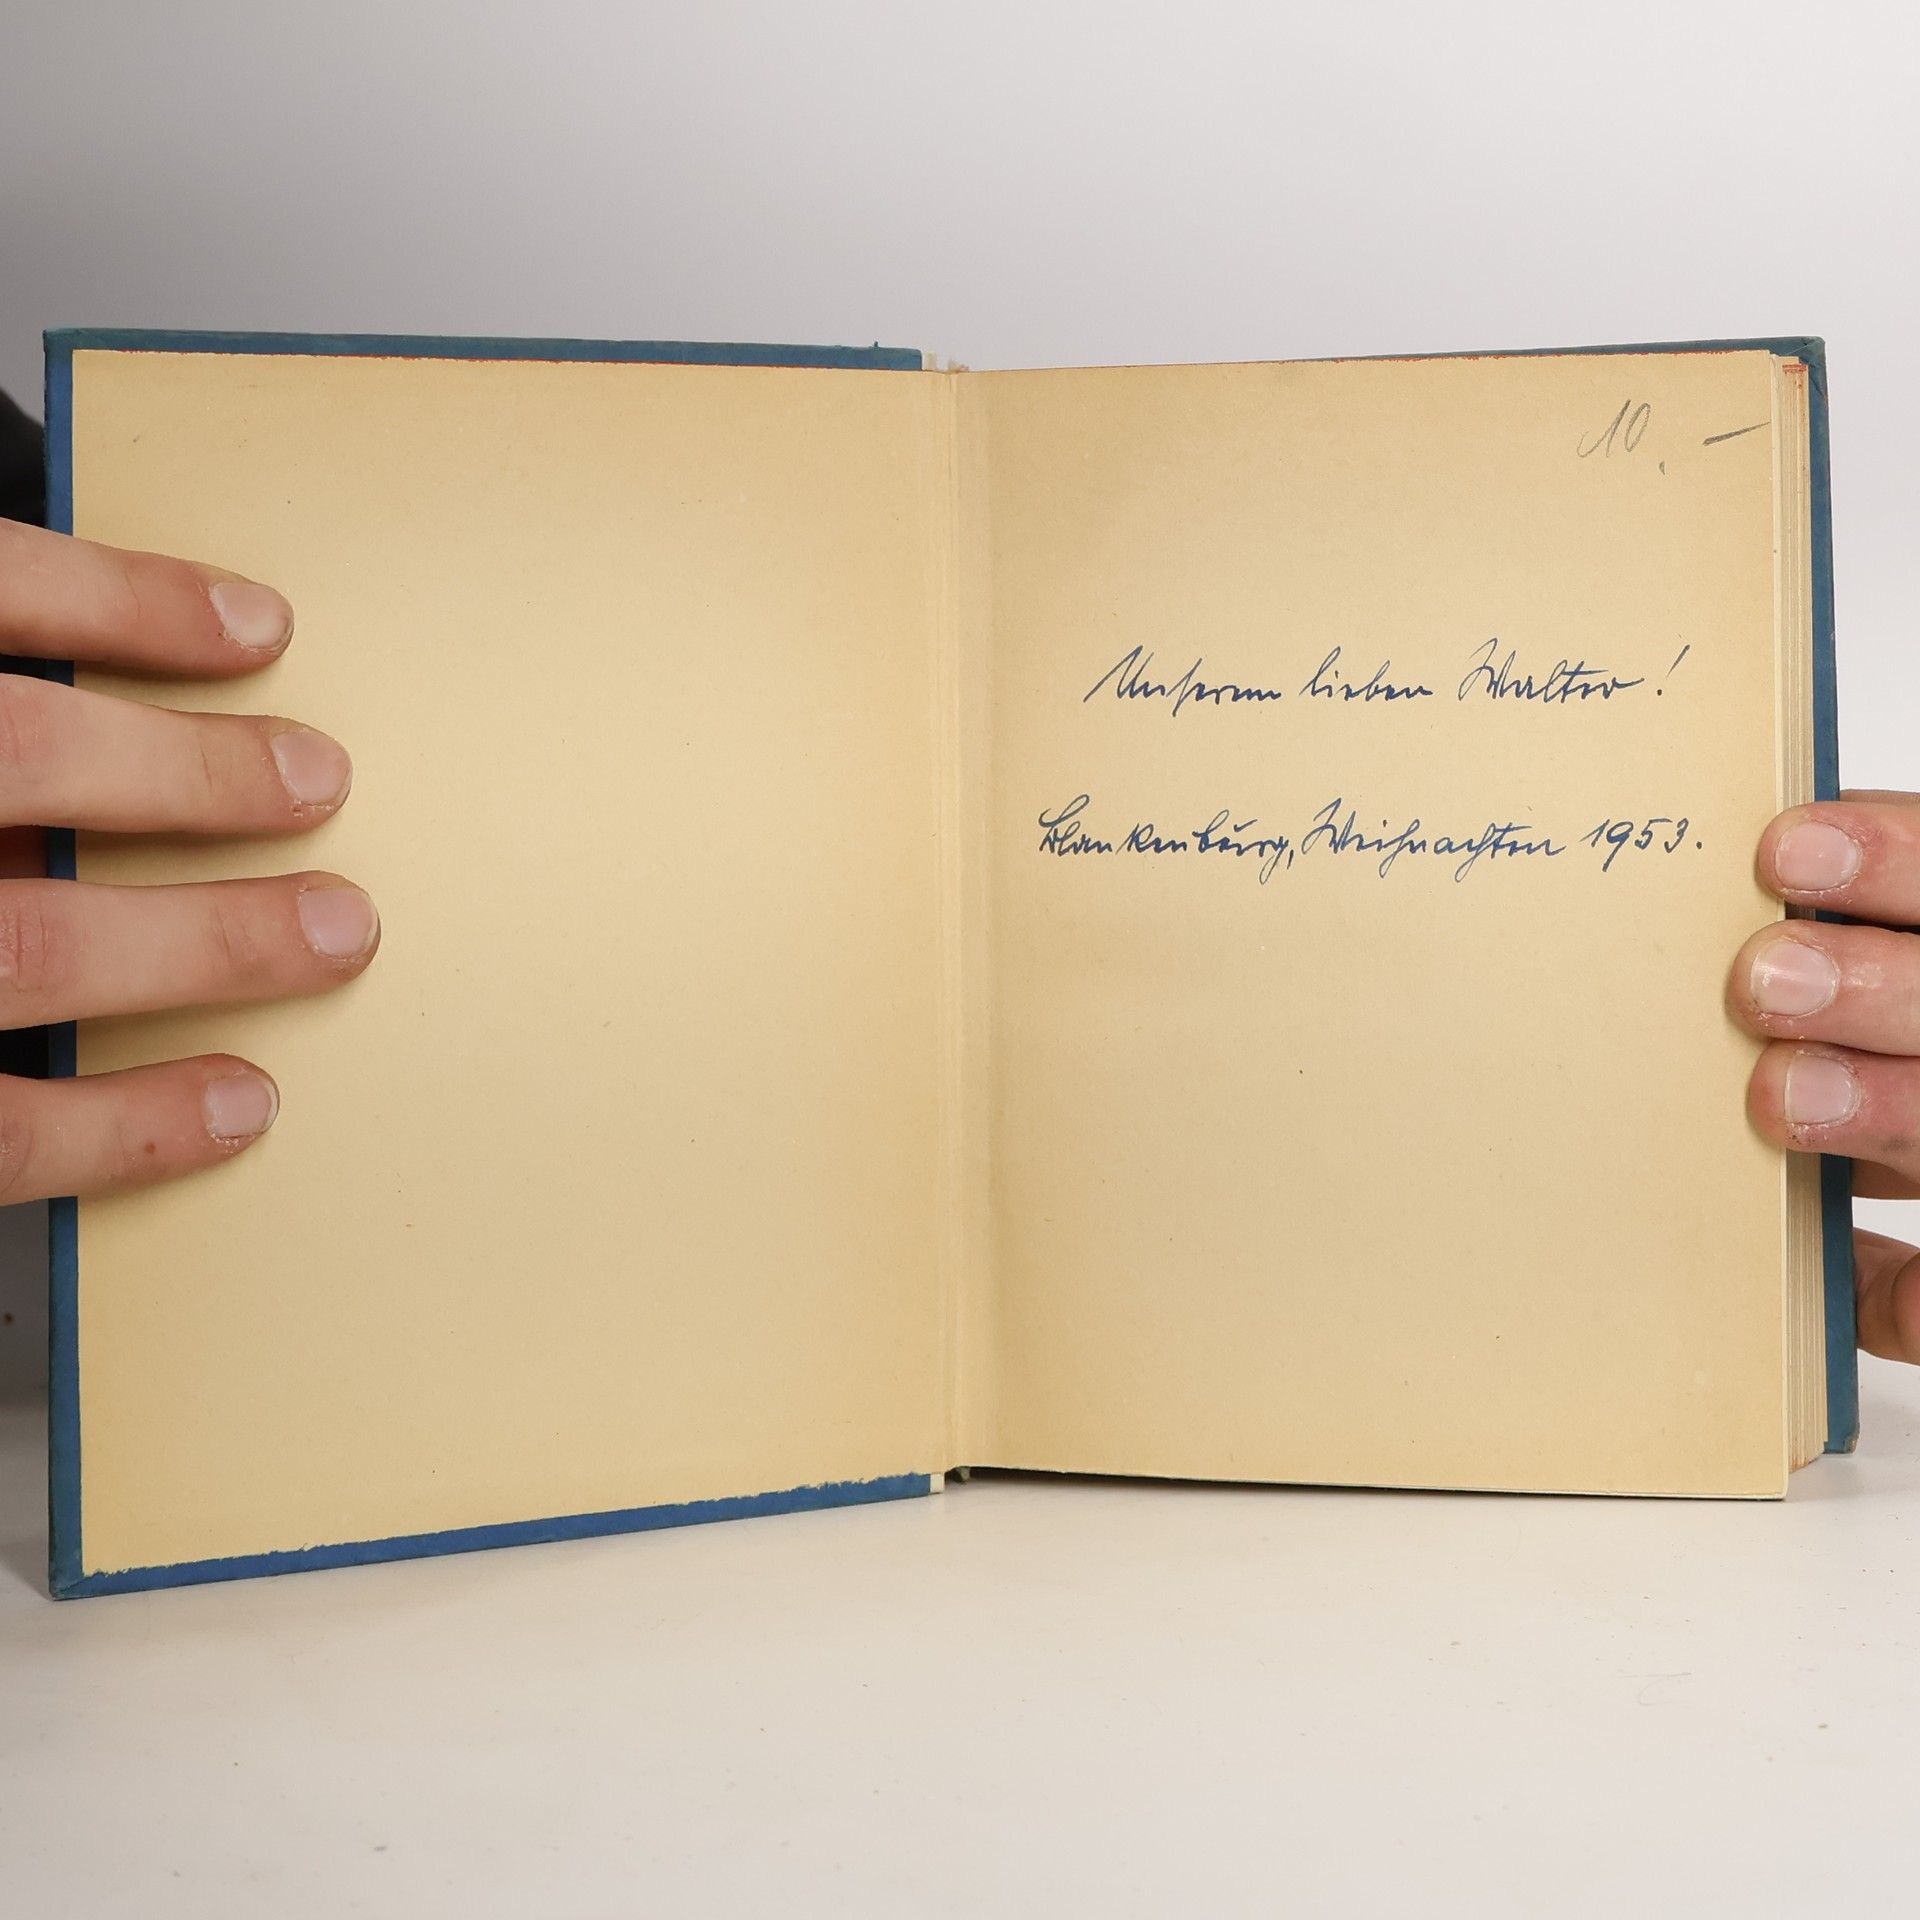 10.-
Unserem lieben Walter!
Blankenburg, Weihnachten 1953.